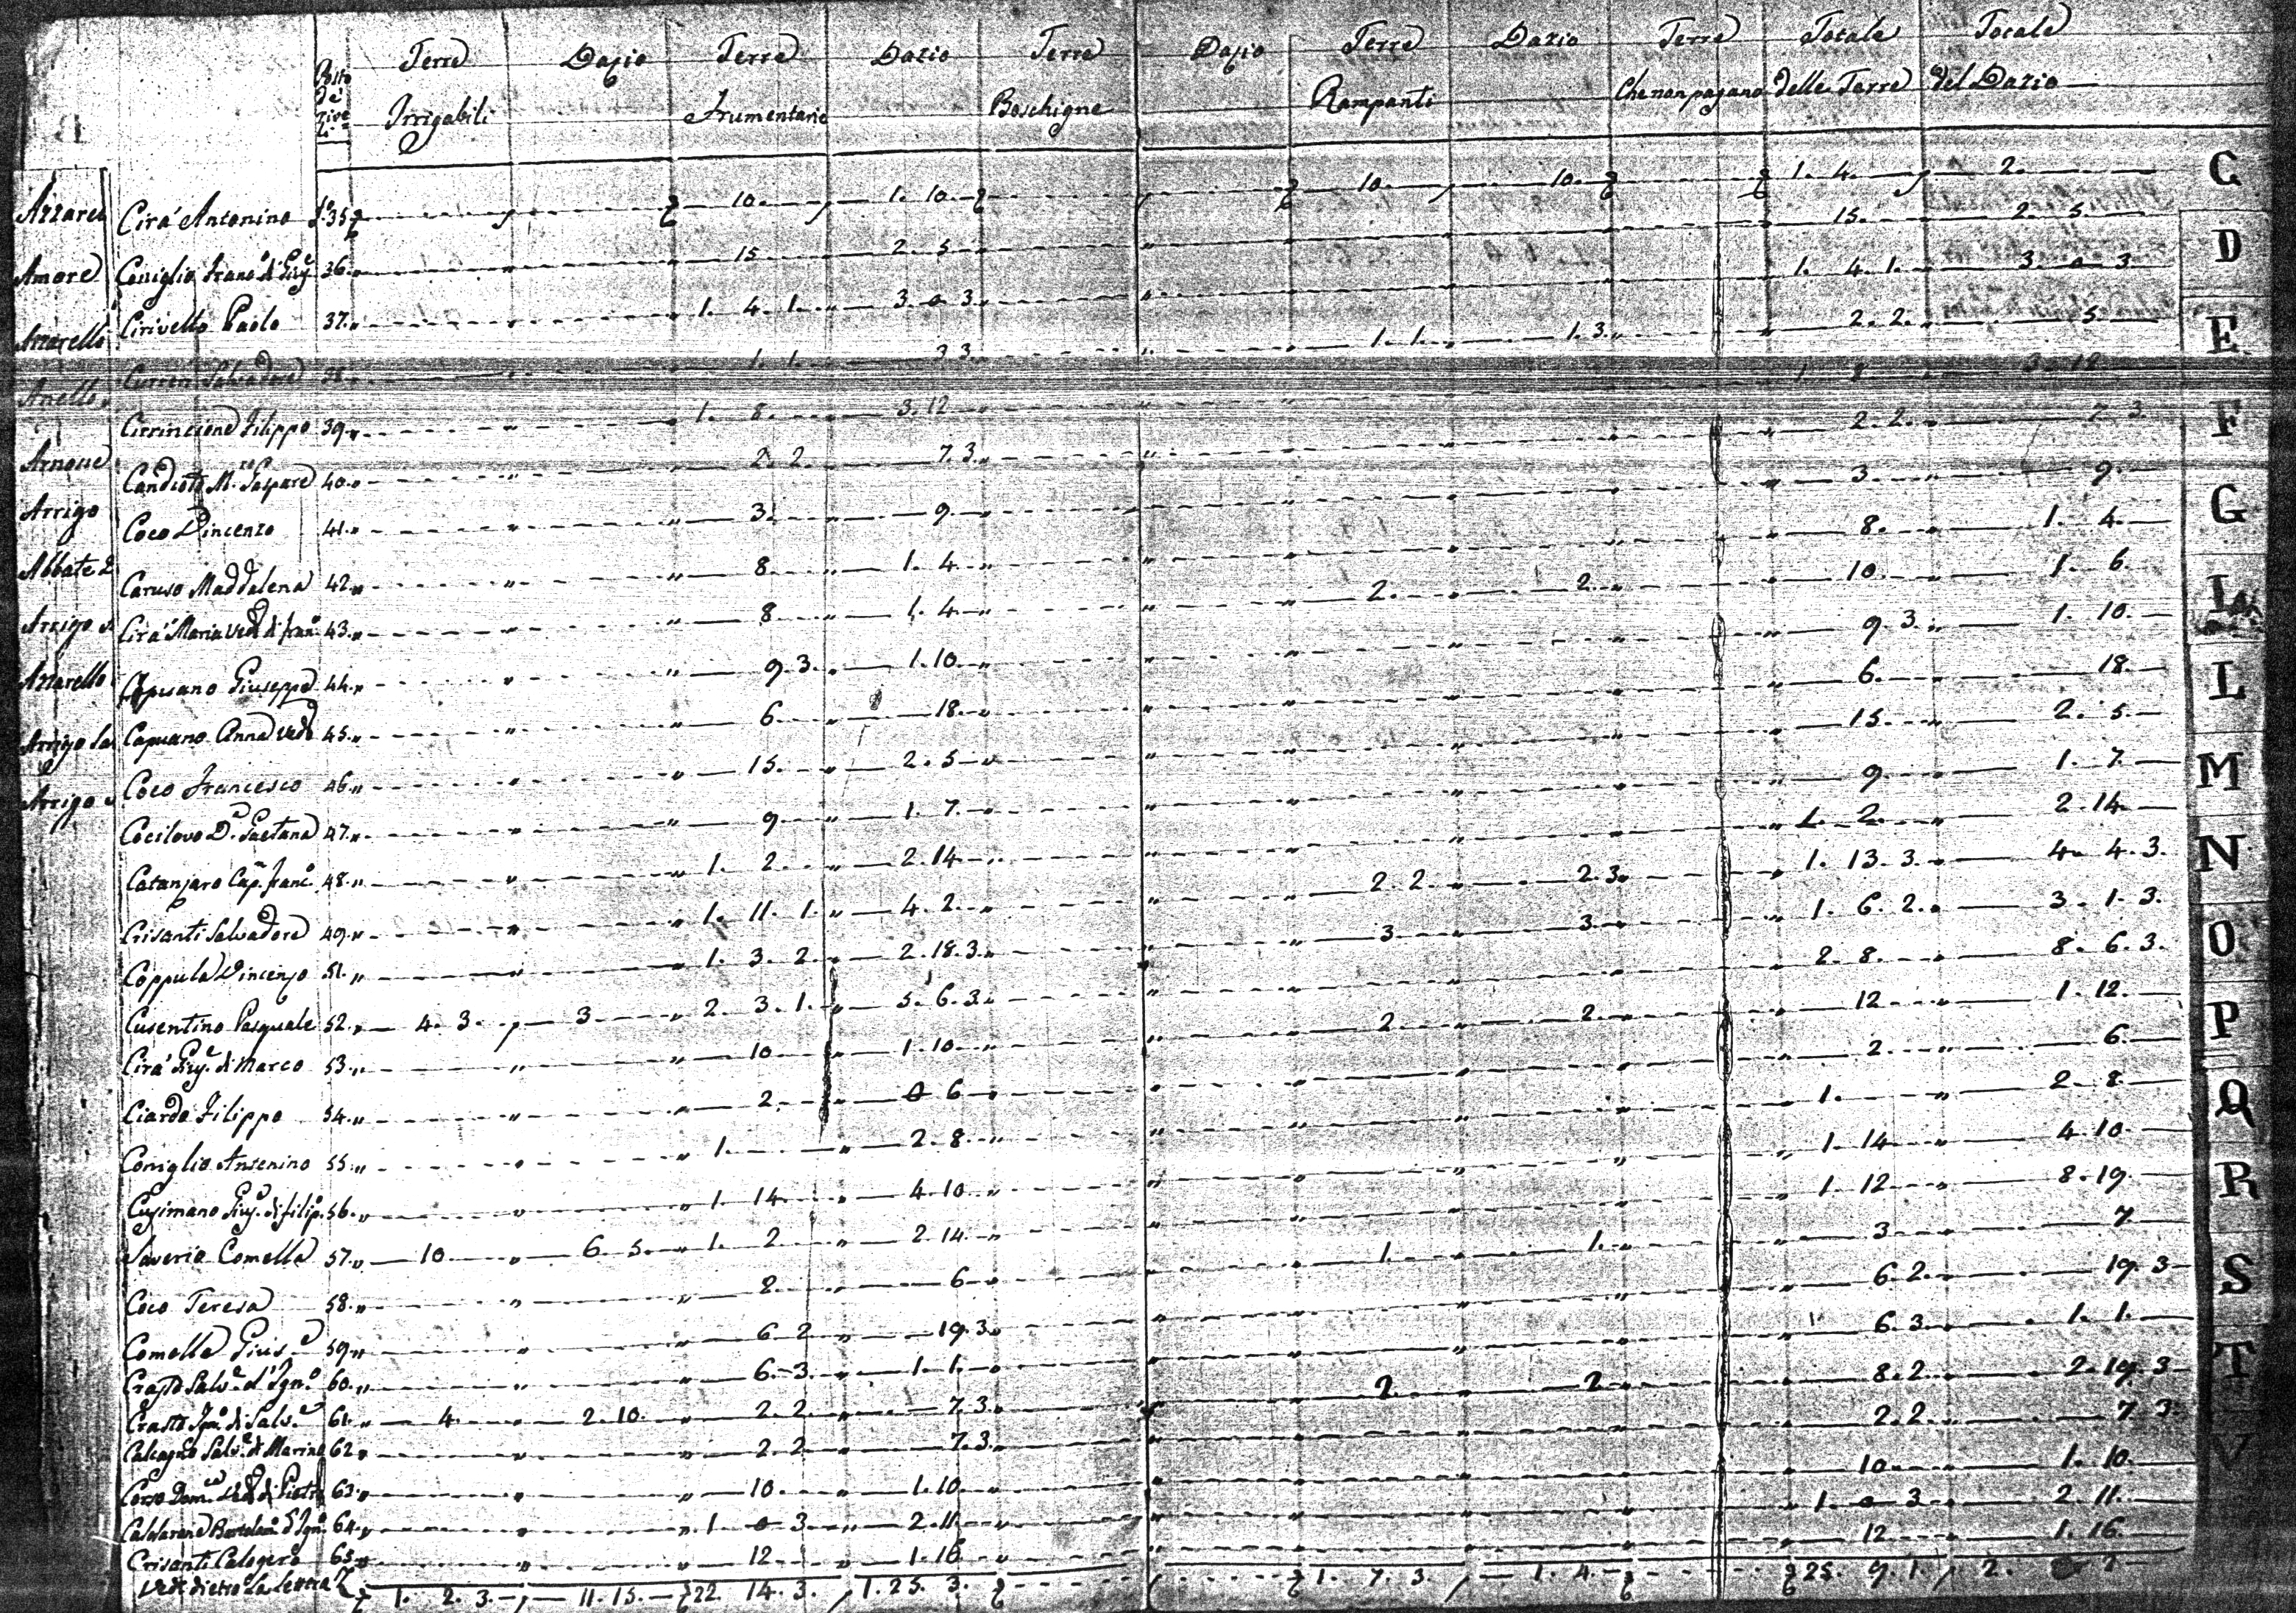 Terre Dazio Terre Dazio Terre Dazio Terre Dazio Terre Totale Totale
Irrigabili Frumentarie Boschigne Rampanti Che non pagano delle Terre del Dazio
Cirá Antonino 35 10. 1. 10. 10. 10. 1. 4. 2.
Coniglio Franc.o di Giu.e 36. 15 2. 5 15. 2. 5.
Cirivello Paolo 37. 1. 4. 1. 3. 0 3. 1. 4. 1. 3. 0 3.
Salvadore 38. 1. 1. 3 3. 1. 1. 1. 3. 2. 2. 5
Cirrincione Filippo 39. 1. 8. 3. 12 1 8 3. 12
Candioto M.ro Gaspare 40. 2. 2. 7. 3. 2. 2. 7 3.
Coco Vincenzo 41. 3. 9. 3 9.
Caruso Maddalena 42. 8. 1. 4. 8. 1. 4.
Cirá Maria Ved.a di Fran.o 43. 8 1. 4 2. 2. 10. 1. 6.
Capuano Giuseppe 44. 9. 3. 1. 10. 9. 3. 1. 10.
Capuano Anna Ved.a 45. 6 18. 6. 18.
Coco Francesco 46. 15. 2. 5 15. 2. 5
Cocilovo D.a Gaetana 47. 9 1. 7. 9 1. 7.
Catanzaro Cap.n Franc.o 48. 1. 2 2. 14 1. 2. 2. 14
Crisanti Salvadore 49. 1. 11. 1. 4. 2. 2. 2. 2. 3. 1. 13. 3. 4. 4. 3.
Coppula Vincenzo 51. 1. 3. 2. 2. 18. 3. 3 3. 1. 6. 2. 3. 1. 3.
Cusentino Pasquale 52. 4. 3. 3 2. 3. 1. 5. 6. 3. 2. 8. 8. 6. 3.
Cirá Giu.e di Marco 53. 10 1. 10 2. 2. 12 1. 12.
Ciardo Filippo 54. 2. 0 6 2. 6.
Coniglio Antonino 55. 1. 2. 8. 1. 2. 8.
Cusimano Giu.e di Filip.o 56. 1. 14. 4. 10 1. 14 4. 10
Saverio Comella 57. 10 6. 5. 1. 2 2. 14. 1. 12 8. 19.
Coco Teresa 58. 2. 6 1. 1. 3 7
Comella Gius.e 59. 6 2 19. 3. 6. 2. 19. 3
Crasto Salv.e d'Ign.o 60. 6. 3. 1. 1. 6. 3. 1. 1.
Crasto Ign.o di Salv.e 61. 4. 2. 10. 2. 2. 7. 3. 2. 2 8. 2. 2. 19. 3
Calcagno Salv.e di Marino 62. 2. 2 7. 3. 2. 2. 7 3.
Corso Dom.ca Ved.a di Pietro 63. 10. 1. 10. 10 1. 10.
Caldarera Bartolom.o d'Ign.o 64. 1 0 3. 2. 11. 1. 0 3. 2. 11.
Crisanti Calogero 65. 12 1. 16 12 1. 16.
Vedi dietro la lettera Z 1. 2. 3. 11. 15. 22. 14. 3. 1. 25. 3. 1. 7. 3. 1. 4. 25. 9. 1. 2.
Amore
Azzarello
Anello
Arnone
Arrigo
Abbate
Arrigo
Azzarello
Arrigo
Arrigo
C
D
E
F
G
I
L
M
N
O
P
Q
R
S
T
V